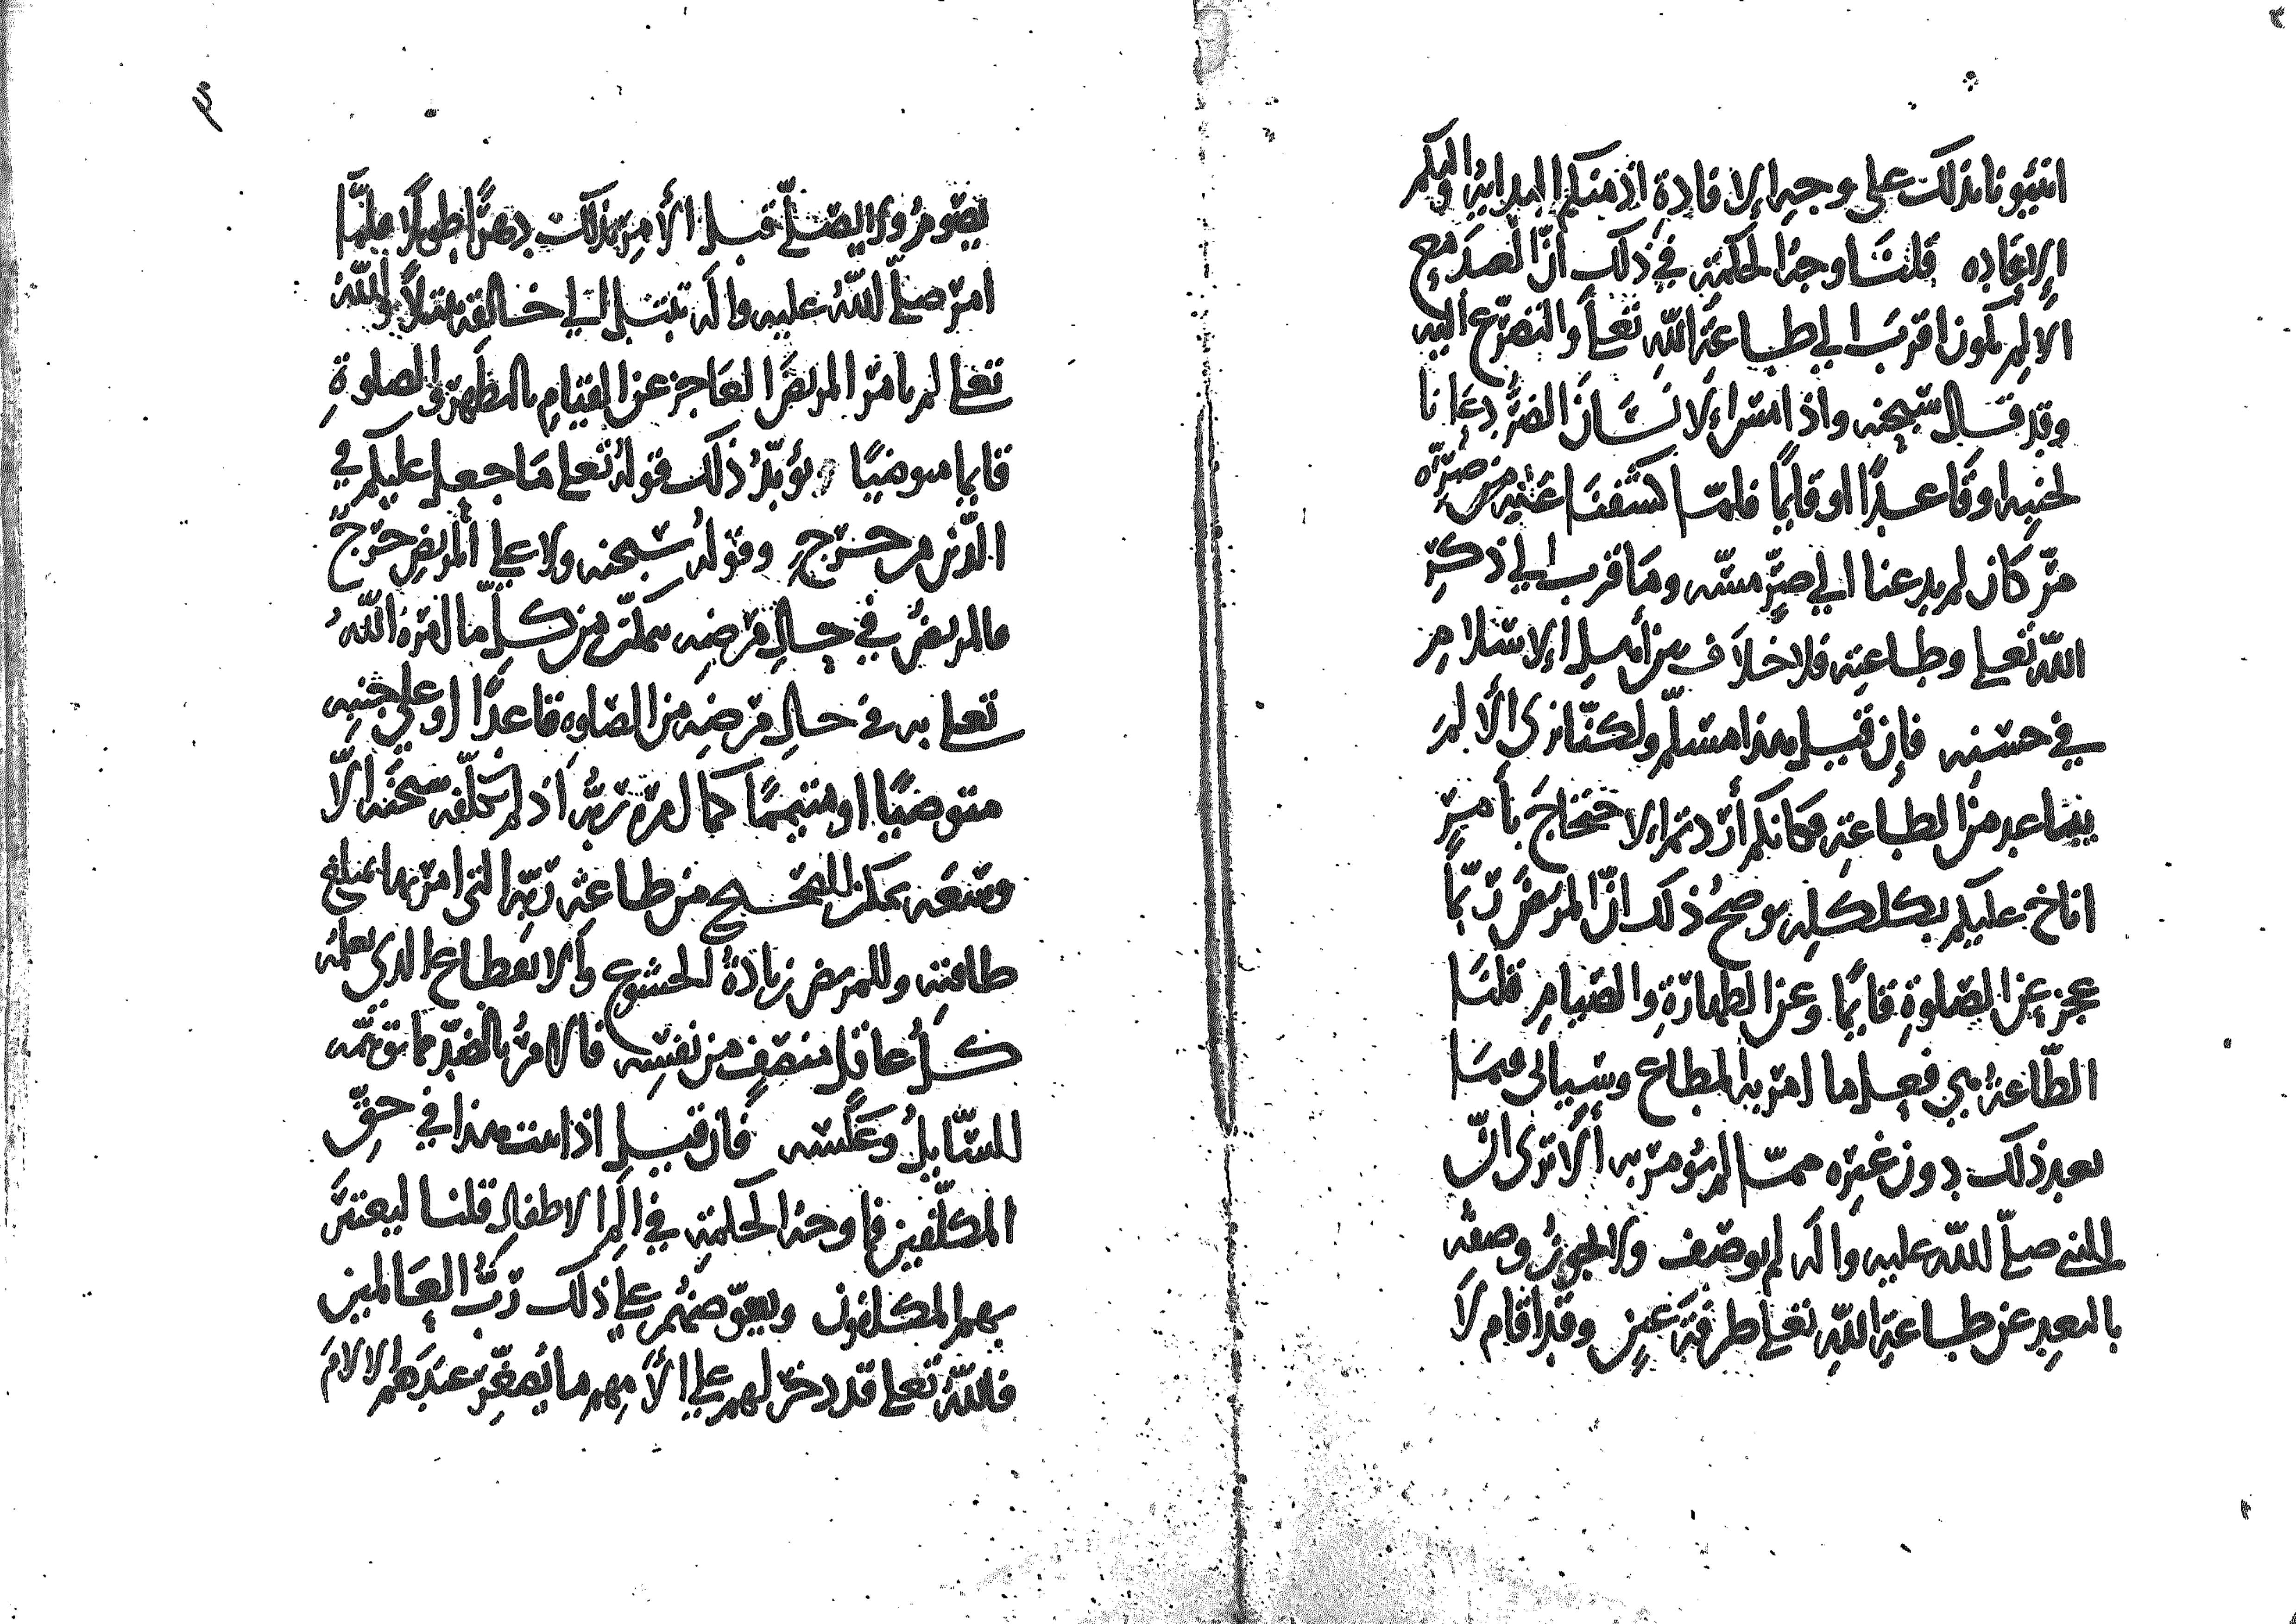 انبئونا بذلك على وجه الإفادة إذ منكم الهداية واليكم
الإيفاده قلنا وجه الحكمة في ذلك أنّ العبد مع
الألم يكون اقرب الى طاعة الله تعلى والتضرع اليه
وقد قال سبحنه واذا مس الإنسان الضرّ دعانا
لجنبه او قاعدًا او قايمًا فلمّا كشفنا عنه ضرّه
مرّ كان لم يدعنا الى ضرّ مسّه وما قرب الى ذكر
الله تعلى وطاعته فلا خلاف بين أهل الإسلام
في حسنه فإن قيل هذا مسلّم ولكنّا نرى الألم
يباعد من الطاعة فكانكم أردتم الاحتجاج بأمر
اناخ عليكم بكلكله يوضح ذلك انّ المريض ربّما
عجز عن الصلوة قايمًا وعن الطهارة والصيام قلنا
الطّاعة هي فعل ما امر به المطاع وسيالى فيما
بعد ذلك دون غيره ممّا لم يؤمر به ألا ترى انّ
النبي صلّى الله عليه وآله لم يوصف ولا يجوز وصفه
بالبعد عن طاعة الله تعلى طرفة عين وقد اقام لا
يصوم ولا يصلّي قبل الأمر بذلك دهرًا طويلًا فلمّا
امر صلّى الله عليه وآله تبتل الى خالقه تبتلًا والله
تعلى لم يامر المريض العاجز عن القيام بالتطهر والصلوة
قايما متوضيًا ويؤيّد ذلك قوله تعلى ما جعل عليكم في
الدّين من حرج وقوله سبحنه ولا على المريض حرج
فالمريض في حال مرضه متمكّن من كل ما امره الله
تعلى به في حال مرضه من الصلوه قاعدًا او على جنبه
متوضيًا او متيممًا كما امره ربّه اذ لم يكلّفه سبحنه الّا
وسعه يمكن للصحيح من طاعة ربّه التي امر بها بمبلغ
طاقته وللمريض زيادة الخشوع والانقطاع الذي يعلمه
كلّ عاقل منصف من نفسه فالامر بالضدّ مما توهّمه
السّايل وعكسه فان قيل اذا ثبت هذا في حقّ
المكلّفين فما وجه الحكمة في الم الاطفال قلنا ليعتبر
بهم المكلفون ويعوّضهم على ذلك ربّ العالمين
فالله تعلى قد ذخر لهم على الآمهم ما يصغّر عندهم الالام